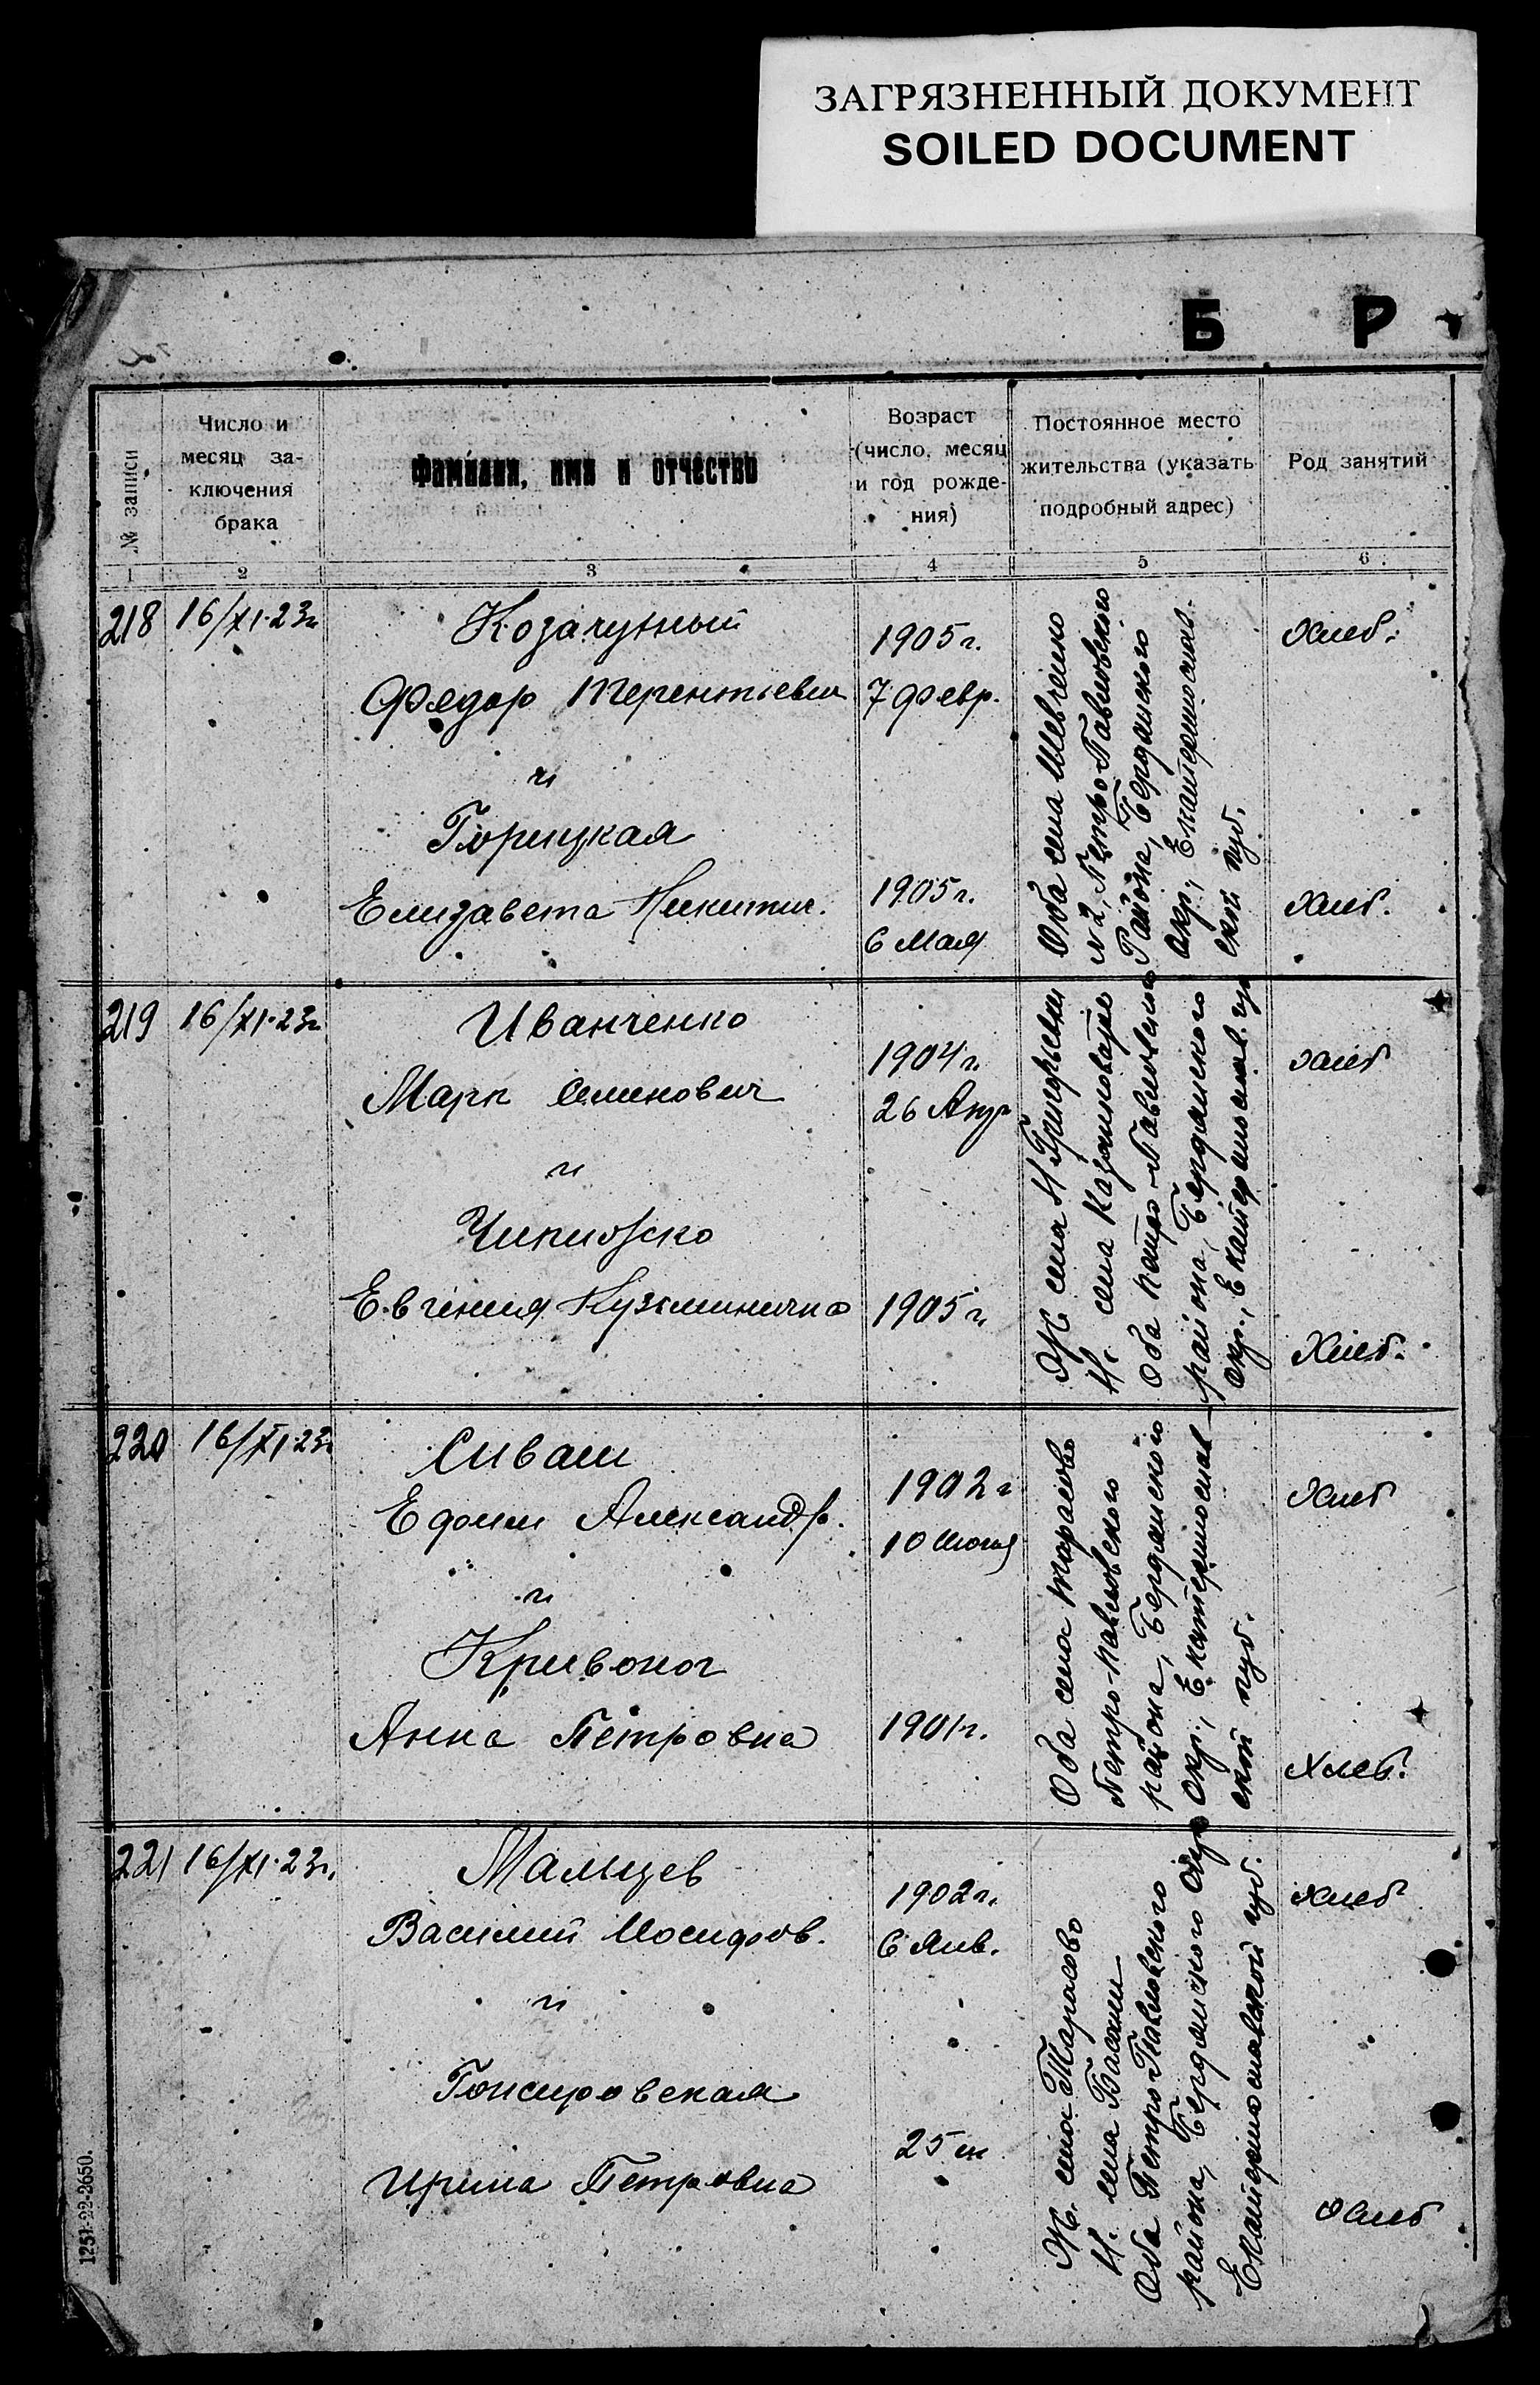 ЗАГРЯЗНЕННЫЙ ДОКУМЕНТ
SOILED DOCUMENT
Б Р
№ записи
Число и
месяц за-
ключения
брака
Фамилия, имя и отчество
Возраст
(число, месяц
и год рожде-
ния)
Постоянное место
жительства (указать
подробный адрес)
Род занятий
1 2 3 4 5 6
218
16/XI-23г
Козачунный
Федор Терентьевич
и
Горицкая
Елизавета Никитич.
1905г.
7 февр.
1905г.
6 мая
Оба села Шевченко
№2, Петро Павловского
района, Бердянского
окр., Екатеринослав-
ской губ.
Хлеб.
Хлеб.
219
16/XI-23г
Иванченко
Марк Семенович
и
Евгения Кузьминична
1904г.
26 Апр
1905г.
Ж села Н Григорьевки
Н. села Казанковатое
Оба Петро-Павловского
района, Бердянского
окр., Екатеринослав. гу
хлеб
Хлеб.
220
16/XI-23г
Сиваш
Ефим Александр.
и
Кривоног
Анна Петровна
1902г
10 июня
1901г.
Оба села Тарасово
Петро-Павловского
района, Бердянского
окр., Екатеринослав
ской губ.
Хлеб
Хлеб.
221
16/XI-23г.
Мальцев
Василий Иосифов.
и
Ирина Петровна
1902г.
6 Янв.
25 л
Ж. села Тарасово
Н. села Басани
Оба Петро Павловского
района, Бердянского Окр
Екатеринославской губ.
хлеб
Хлеб
1251-22-2650.